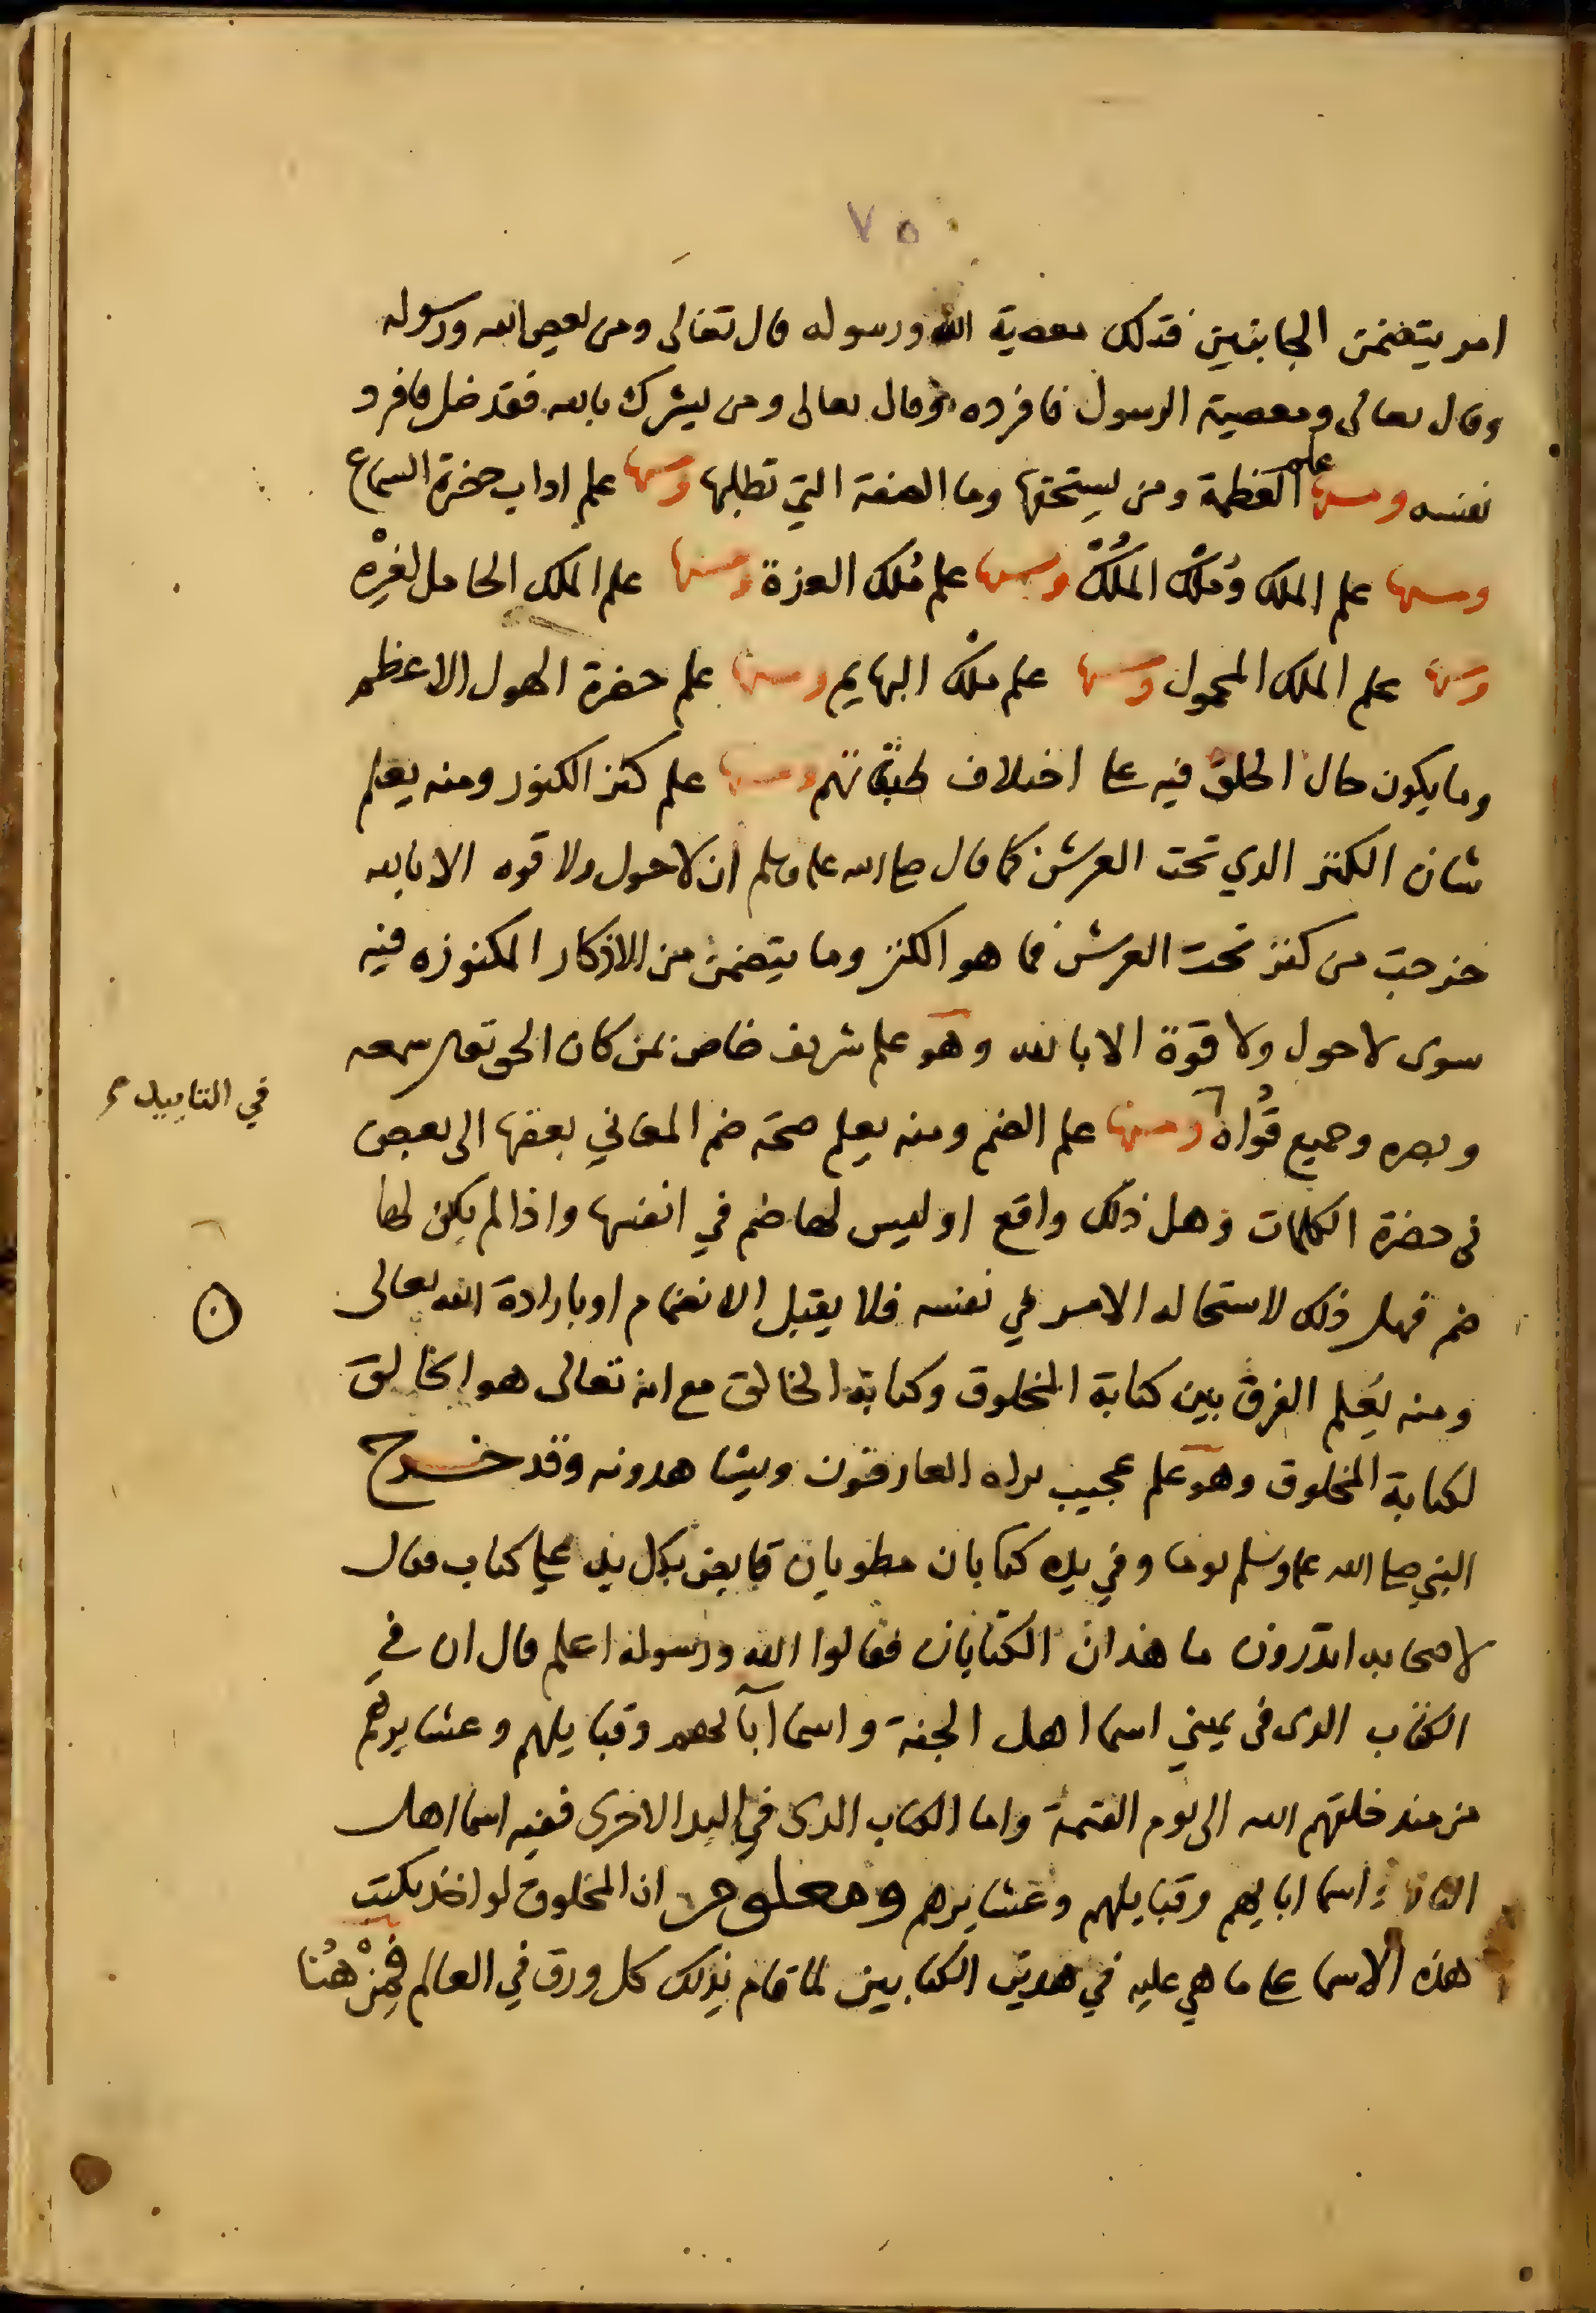 ٧٥
امر يتضمن الجانبين فذلك معصية الله ورسوله قال تعالى ومن يعص الله ورسوله
وقال تعالى ومعصية الرسول فافرده وقال تعالى ومن يشرك بالله فقد ضل فافرد
نفسه ومنها علم العظمة ومن يستحقها وما الصفة التي تطلبها ومنها علم اداب حضرة السماع
ومنها علم الملك ومُلك المُلك ومنها علم مُلك العزة ومنها علم الملك الحامل لغيره
ومنها علم الملك المحمول ومنها علم ملك البهايم ومنها علم حضرة الهول الاعظم
وما يكون حال الخلق فيه على اختلاف طبقاتهم ومنها علم كنز الكنوز ومنه يعلم
شان الكنز الذي تحت العرش كما قال صلى الله عليه وسلم ان لا حول ولا قوه الا بالله
خرجت من كنز تحت العرش فما هو الكنز وما يتضمن من الاذكار المكنوزه فيه
سوى لا حول ولا قوة الا بالله وهو علم شريف خاص بمن كان الحق تعلى سمعه
وبصره وجميع قُواه ومنها علم الضم ومنه يعلم صحة ضم المعاني بعضها الى بعض
في التابيد
في حضرة الكلمات وهل ذلك واقع او ليس لها ضم في انفسها واذا لم يكن لها
ضم فهل ذلك لاستحاله الامر في نفسه فلا يقبل الانضمام او بارادة الله تعالى
ومنه يُعلم الفرق بين كتابة المخلوق وكتابة الخالق مع انه تعالى هو الخالق
لكتابة المخلوق وهو علم عجيب يراه العارفون ويشاهدونه وقد خرج
النبي صلى الله عليه وسلم يوما وفي يده كتابان مطويان قابض بكل يد على كتاب فقال
لاصحابه اتدرون ما هذان الكتابان فقالوا الله ورسوله اعلم قال ان في
الكتاب الذي في يميني اسما اهل الجنة واسما آبائهم وقبايلهم وعشايرهم
من منذ خلقهم الله الى يوم القيمة واما الكتاب الذي في اليد الاخرى ففيه اسما اهل
النار واسما ابايهم وقبايلهم وعشايرهم ومعلوم ان المخلوق لو اخذ يكتب
هذه الاسما على ما هي عليه في هذين الكتابين لما قام بذلك كل ورق في العالم فمن هُنا